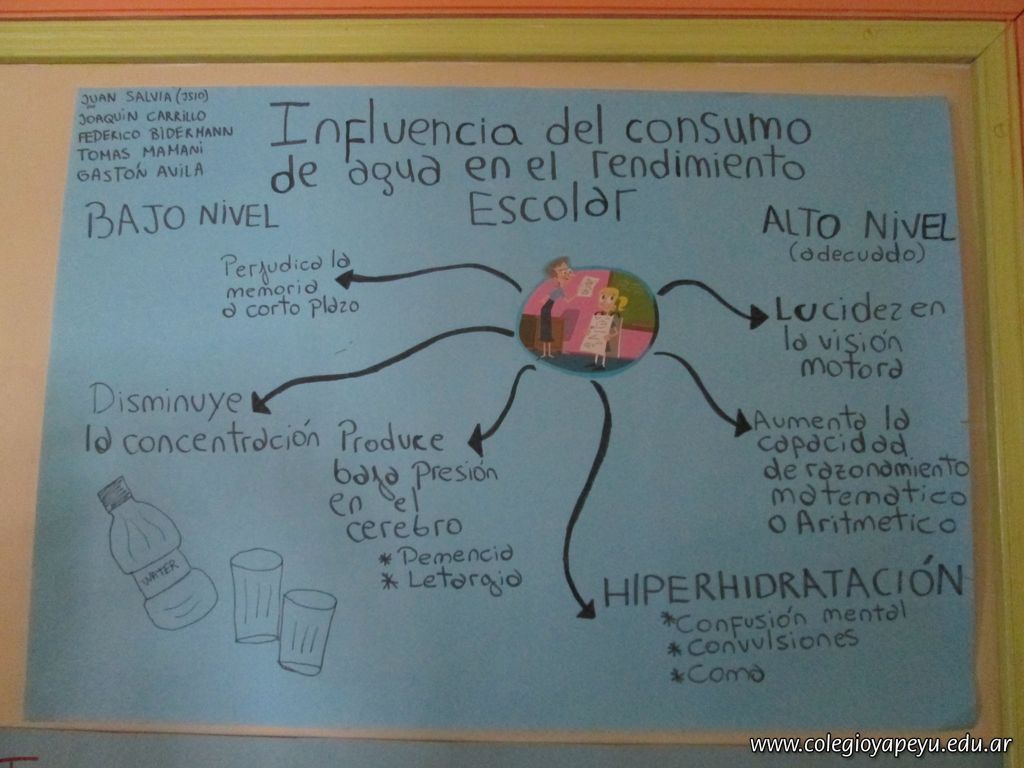 JUAN SALVIA (JSIO)
JOAQUIN CARRILLO
FEDERICO BIDERMANN
TOMAS MAMANI
GASTÓN AVILA
Influencia del consumo
de agua en el rendimiento
Escolar
BAJO NIVEL
Perjudica la
memoria
a corto plazo
Disminuye
la concentración
Produce
baja presión
en el
cerebro
* Demencia
* Letargia
WATER
ALTO NIVEL
(adecuado)
Lucidez en
la visión
motora
Aumenta la
capacidad
de razonamiento
matematico
o Aritmetico
HIPERHIDRATACIÓN
* Confusión mental
* Convulsiones
* Coma
www.colegioyapeyu.edu.ar